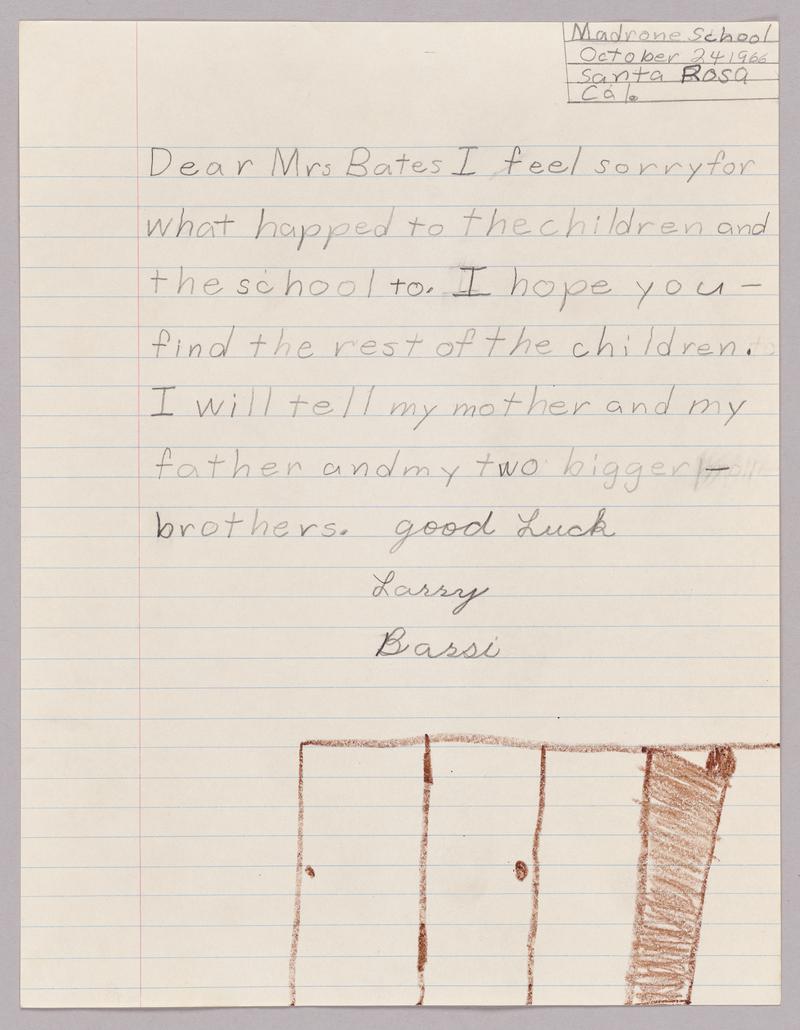 Madrone School
October 24 1966
Santa Rosa
Cal.
Dear Mrs Bates I feel sorry for
what happed to the children and
the school to. I hope you –
find the rest of the children.
I will tell my mother and my
father and my two bigger –
brothers. good Luck
Larry
Bassi